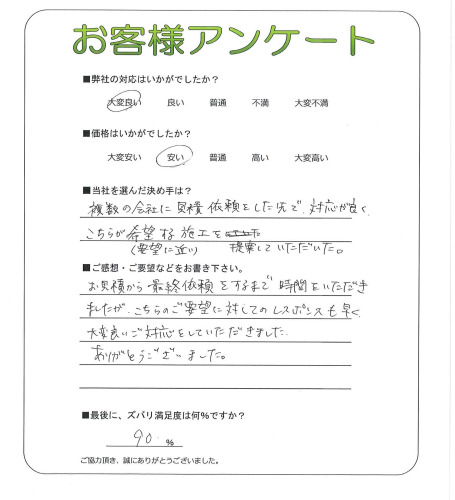 お客様アンケート
■弊社の対応はいかがでしたか?
大変良い 良い 普通 不満 大変不満
■価格はいかがでしたか?
大変安い 安い 普通 高い 大変高い
■当社を選んだ決め手は?
複数の会社に見積依頼をした先で、対応が良く
こちらが希望する施工を
(要望に近い) 提案していただいた。
■ご感想・ご要望などをお書き下さい。
お見積から最終依頼をするまで時間をいただき
ましたが、こちらのご要望に対してのレスポンスも早く
大変良いご対応をしていただきました。
ありがとうございました。
■最後に、ズバリ満足度は何%ですか?
90. %
ご協力頂き、誠にありがとうございました。